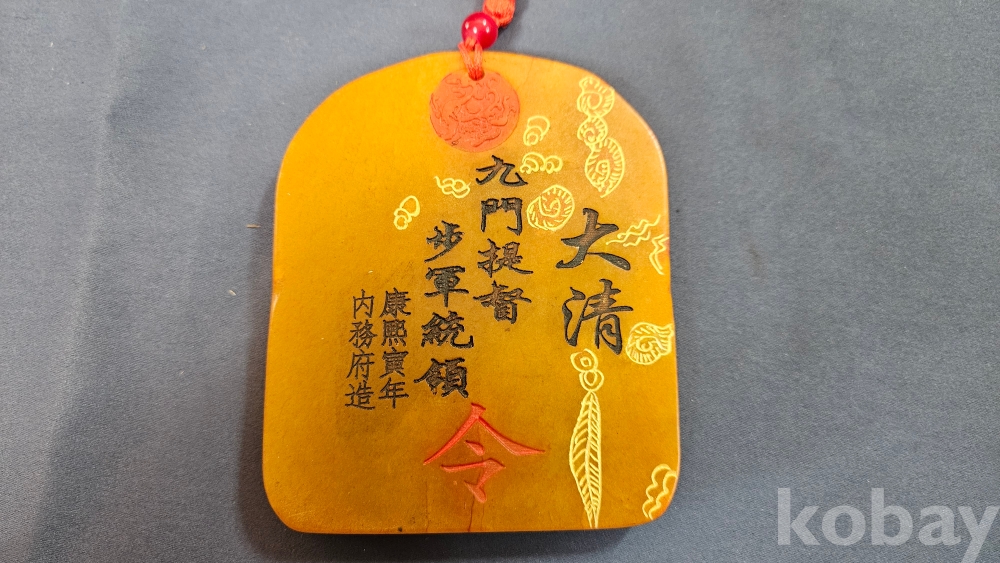 大清
九門提督
步軍統領
令
康熙寅年
内務府造
kobay